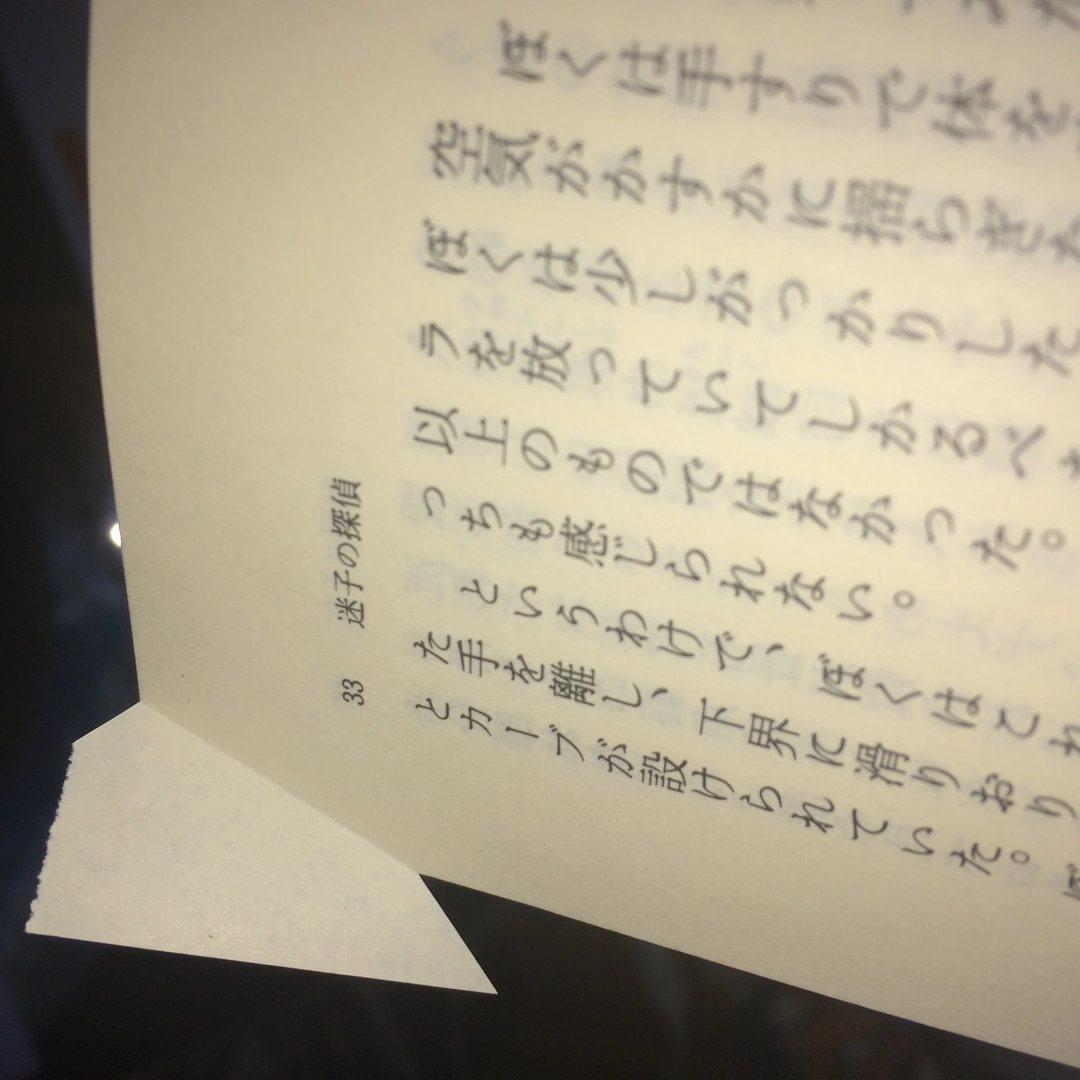 ぼくは手すりで体を
空気がかすかに揺らぎ
ぼくは少しがっかりした
ラを放っていてしかるべ
以上のものではなかった。
っちも感じられない。
というわけで、ぼくはこれ
た手を離し、下界に滑りおり
とカーブが設けられていた。ぼ
33 迷子の探偵